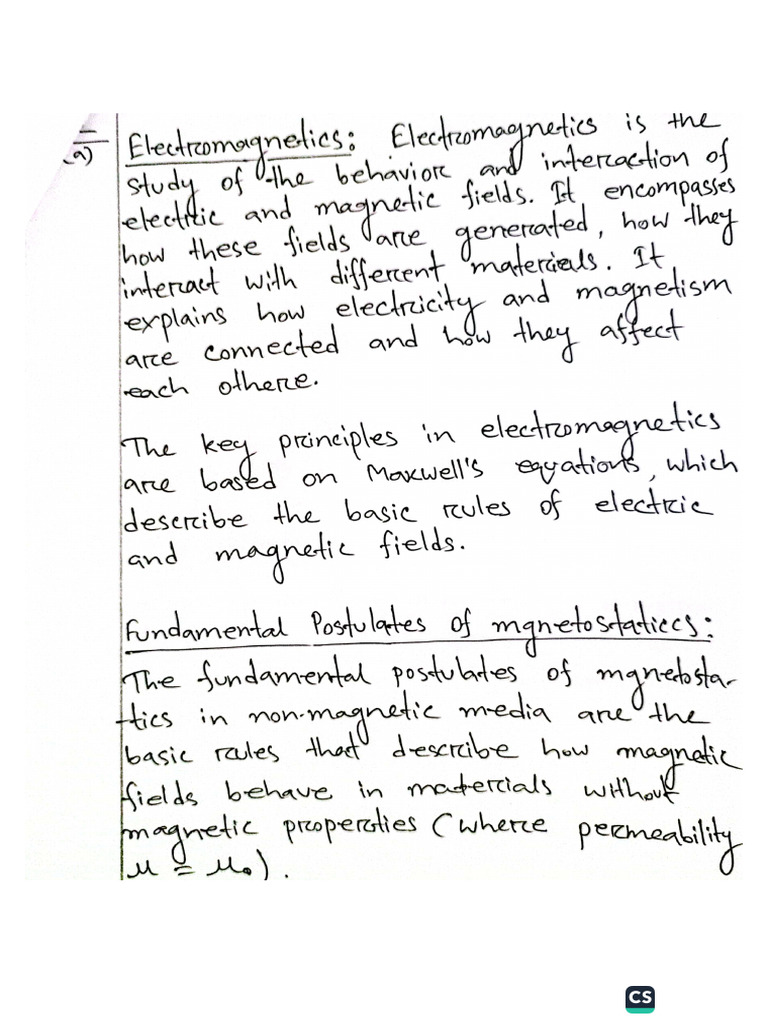 (a)
Electromagnetics: Electromagnetics is the
study of the behavior and interaction of
electric and magnetic fields. It encompasses
how these fields are generated, how they
interact with different materials. It
explains how electricity and magnetism
are connected and how they affect
each othere.
The key principles in electromagnetics
are based on Maxwell's equations, which
describe the basic rules of electric
and magnetic fields.
Fundamental Postulates of mgnetostaticcs:
The fundamental postulates of mgnetosta-
tics in non-magnetic media are the
basic rules that describe how magnetic
fields behave in materials without
magnetic properties (where permeability
μ = μ₀).
CS